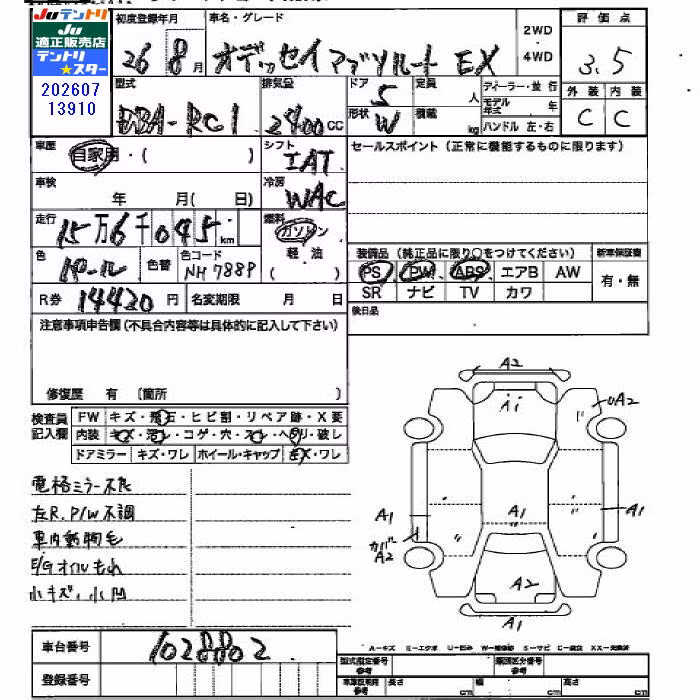 Juテントリ
Ju
適正販売店
テントリ
★スター
202607
13910
初度登録年月
26 8月
車名・グレード
オデッセイ アブソルート EX
2WD
・
4WD
評価点
3.5
型式
DBA-RC1
排気量
2400cc
ドア
5
形状
W
定員
人
積載
kg
ディーラー・並行
モデル年式 年
ハンドル 左・右
外装 内装
C C
車歴
自家用・( )
シフト
IAT
セールスポイント (正常に機能するものに限ります)
車検
年 月( 日)
冷房
WAC
走行
15万6千045km
燃料
ガソリン
軽油
色
パール
色替
色コード
NH788P
装備品 (純正品に限り○をつけてください)
新車保証書
PS PW ABS エアB AW
SR ナビ TV カワ
有・無
R券 14420円
名変期限 月 日
後日品
注意事項申告欄(不具合内容等は具体的に記入して下さい)
修復歴 有 〔箇所 〕
検査員
記入欄
FW キズ・飛石・ヒビ割・リペア跡・X要
内装 キズ・汚レ・コゲ・穴・スレ・ヘタリ・破レ
ドアミラー キズ・ワレ ホイール・キャップ キズ・ワレ
電格ミラー不良
左R.P/W不調
車内動物毛
E/Gオイルもれ
小キズ、小凹
A2
A1
UA2
A1
A1
A1
カバー
A2
A2
A1
車台番号
1028802
登録番号
A-キズ E-エクボ U-凹み W-補修跡 S-サビ C-腐食 XX-交換済
型式指定番号
参考
類別区分番号
参考
車庫証明用
参考
長さ cm
幅 cm
高さ cm